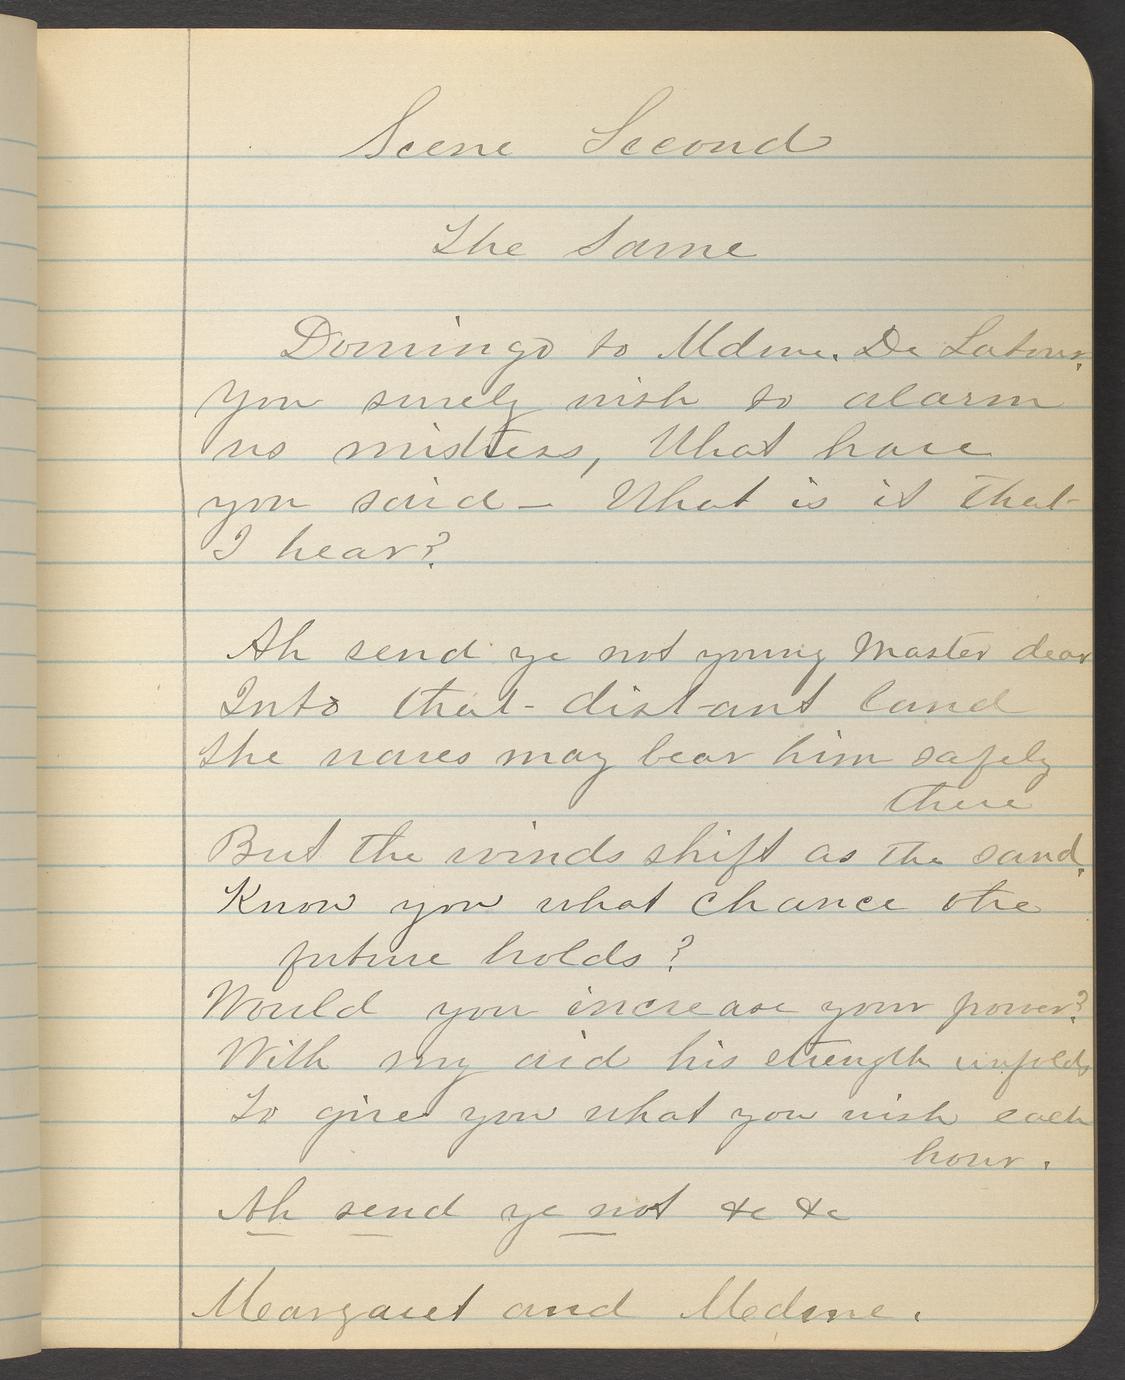 Scene Second
The Same
Domingo to Mdme. De Latour.
You surely wish to alarm
us mistress, What have
you said - What is it that
I hear?
Ah send ye not young Master dear
Into that distant land
The waves may bear him safely
there
But the winds shift as the sand.
Know you what chance the
future holds?
Would you increase your power?
With my aid his strength unfolds
To give you what you wish each
hour.
Ah send ye not &c &c
Margaret and Medme.